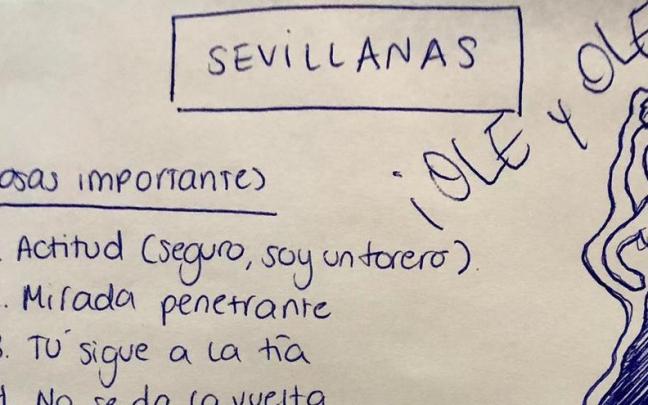 SEVILLANAS
¡OLE Y OLE
osas importantes
. Actitud (seguro, soy un torero).
. Mirada penetrante
3. TÚ sigue a la tía
4. No se da la vuelta